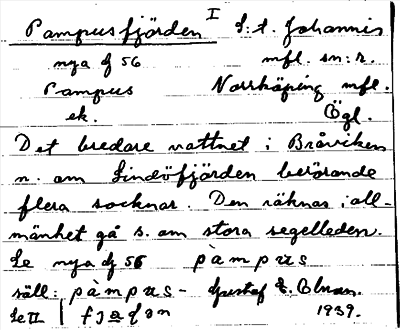 Pampusfjärden I S:t Johannis
nya dj 56 mfl. sn:r.
Pampus Norrköping mfl.
ek. Ögl.
Det bredare vattnet i Bråviken
n. om Lindöfjärden berörande
flera socknar. Den räknas i all-
mänhet gå s. om stora segelleden.
Se nya dj 56 pàmpɯs
säll: pàmpɯs - Gustaf E.
Se II 1939.